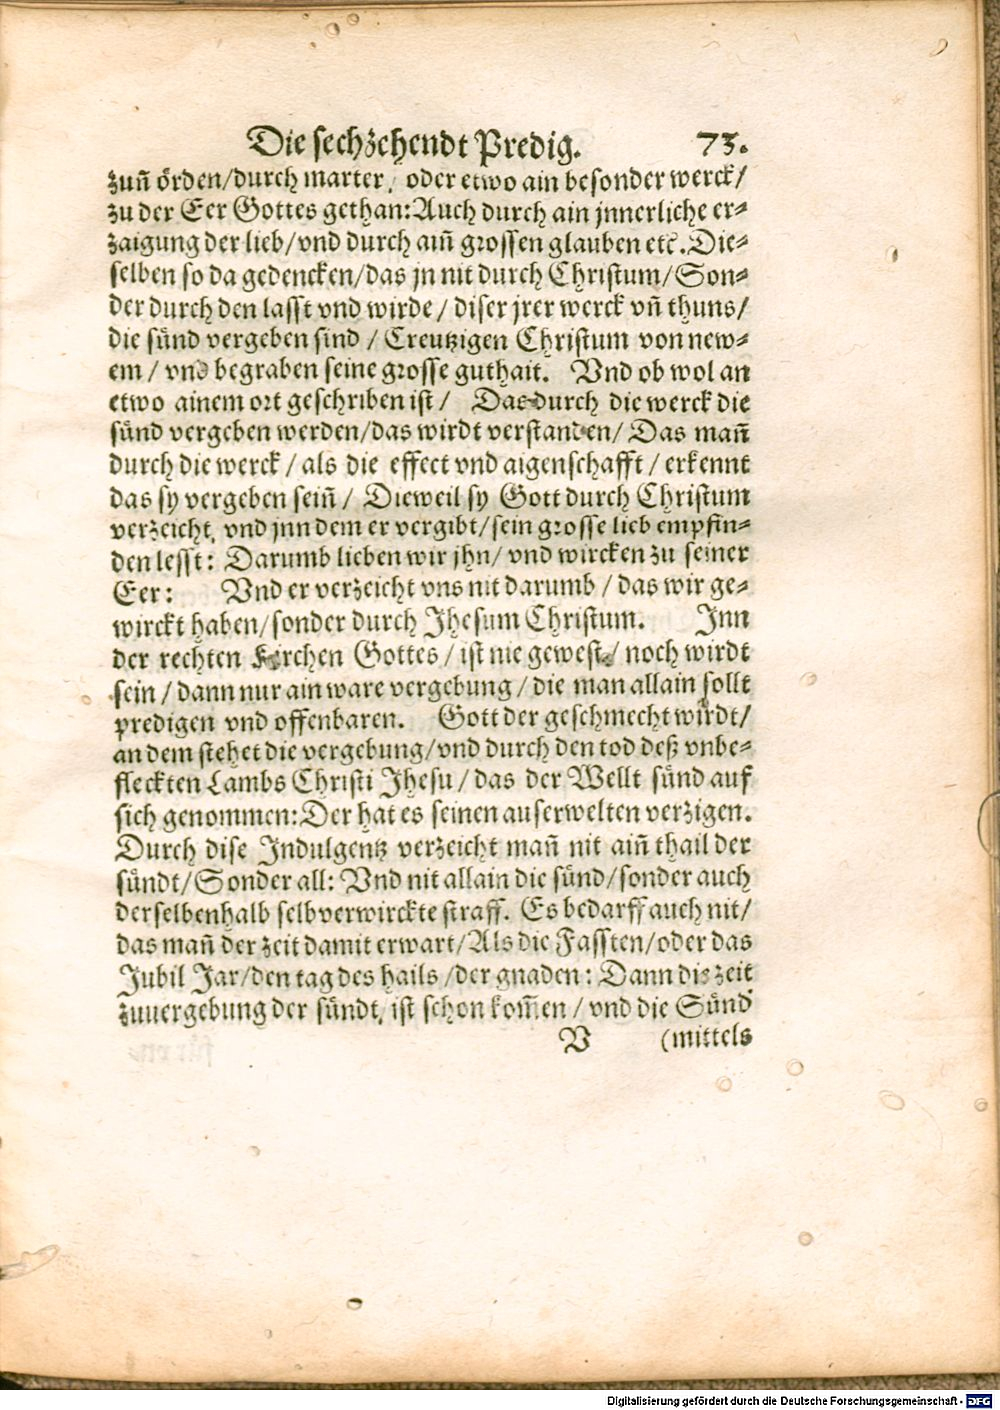 Die sechzehendt Predig. 73.
zuñ örden/durch marter, oder etwo ain besonder werck/
zu der Eer Gottes gethan: Auch durch ain jnnerliche er-
zaigung der lieb/vnd durch aiñ grossen glauben etc. Die-
selben so da gedencken/das jn nit durch Christum/Son-
der durch den lasst vnd wirde/ diser jrer werck vñ thuns/
die sünd vergeben sind / Creutzigen Christum von new-
em / vnd begraben seine grosse guthait. Vnd ob wol an
etwo ainem ort geschriben ist / Das durch die werck die
sünd vergeben werden/das wirdt verstanden/ Das mañ
durch die werck / als die effect vnd aigenschafft / erkennt
das sy vergeben seiñ / Dieweil sy Gott durch Christum
verzeicht, vnd jnn dem er vergibt/sein grosse lieb empfin-
den lesst: Darumb lieben wir jhn/ vnd wircken zu seiner
Eer: Vnd er verzeicht vns nit darumb / das wir ge-
wirckt haben/sonder durch Jhesum Christum. Inn
der rechten Kirchen Gottes / ist nie gewest / noch wirdt
sein / dann nur ain ware vergebung / die man allain sollt
predigen vnd offenbaren. Gott der geschmecht wirdt/
an dem stehet die vergebung/vnd durch den tod deß vnbe-
fleckten Lambs Christi Jhesu / das der Wellt sünd auf
sich genommen: Der hat es seinen auserwelten verzigen.
Durch dise Indulgentz verzeicht mañ nit aiñ thail der
sündt/Sonder all: Vnd nit allain die sünd/sonder auch
derselbenhalb selbverwirckte straff. Es bedarff auch nit/
das mañ der zeit damit erwart/Als die Fassten/oder das
Jubil Jar/den tag des hails /der gnaden: Dann die zeit
zuuergebung der sündt, ist schon kom̃en / vnd die Sünd
V (mittels
Digitalisierung gefördert durch die Deutsche Forschungsgemeinschaft - DFG